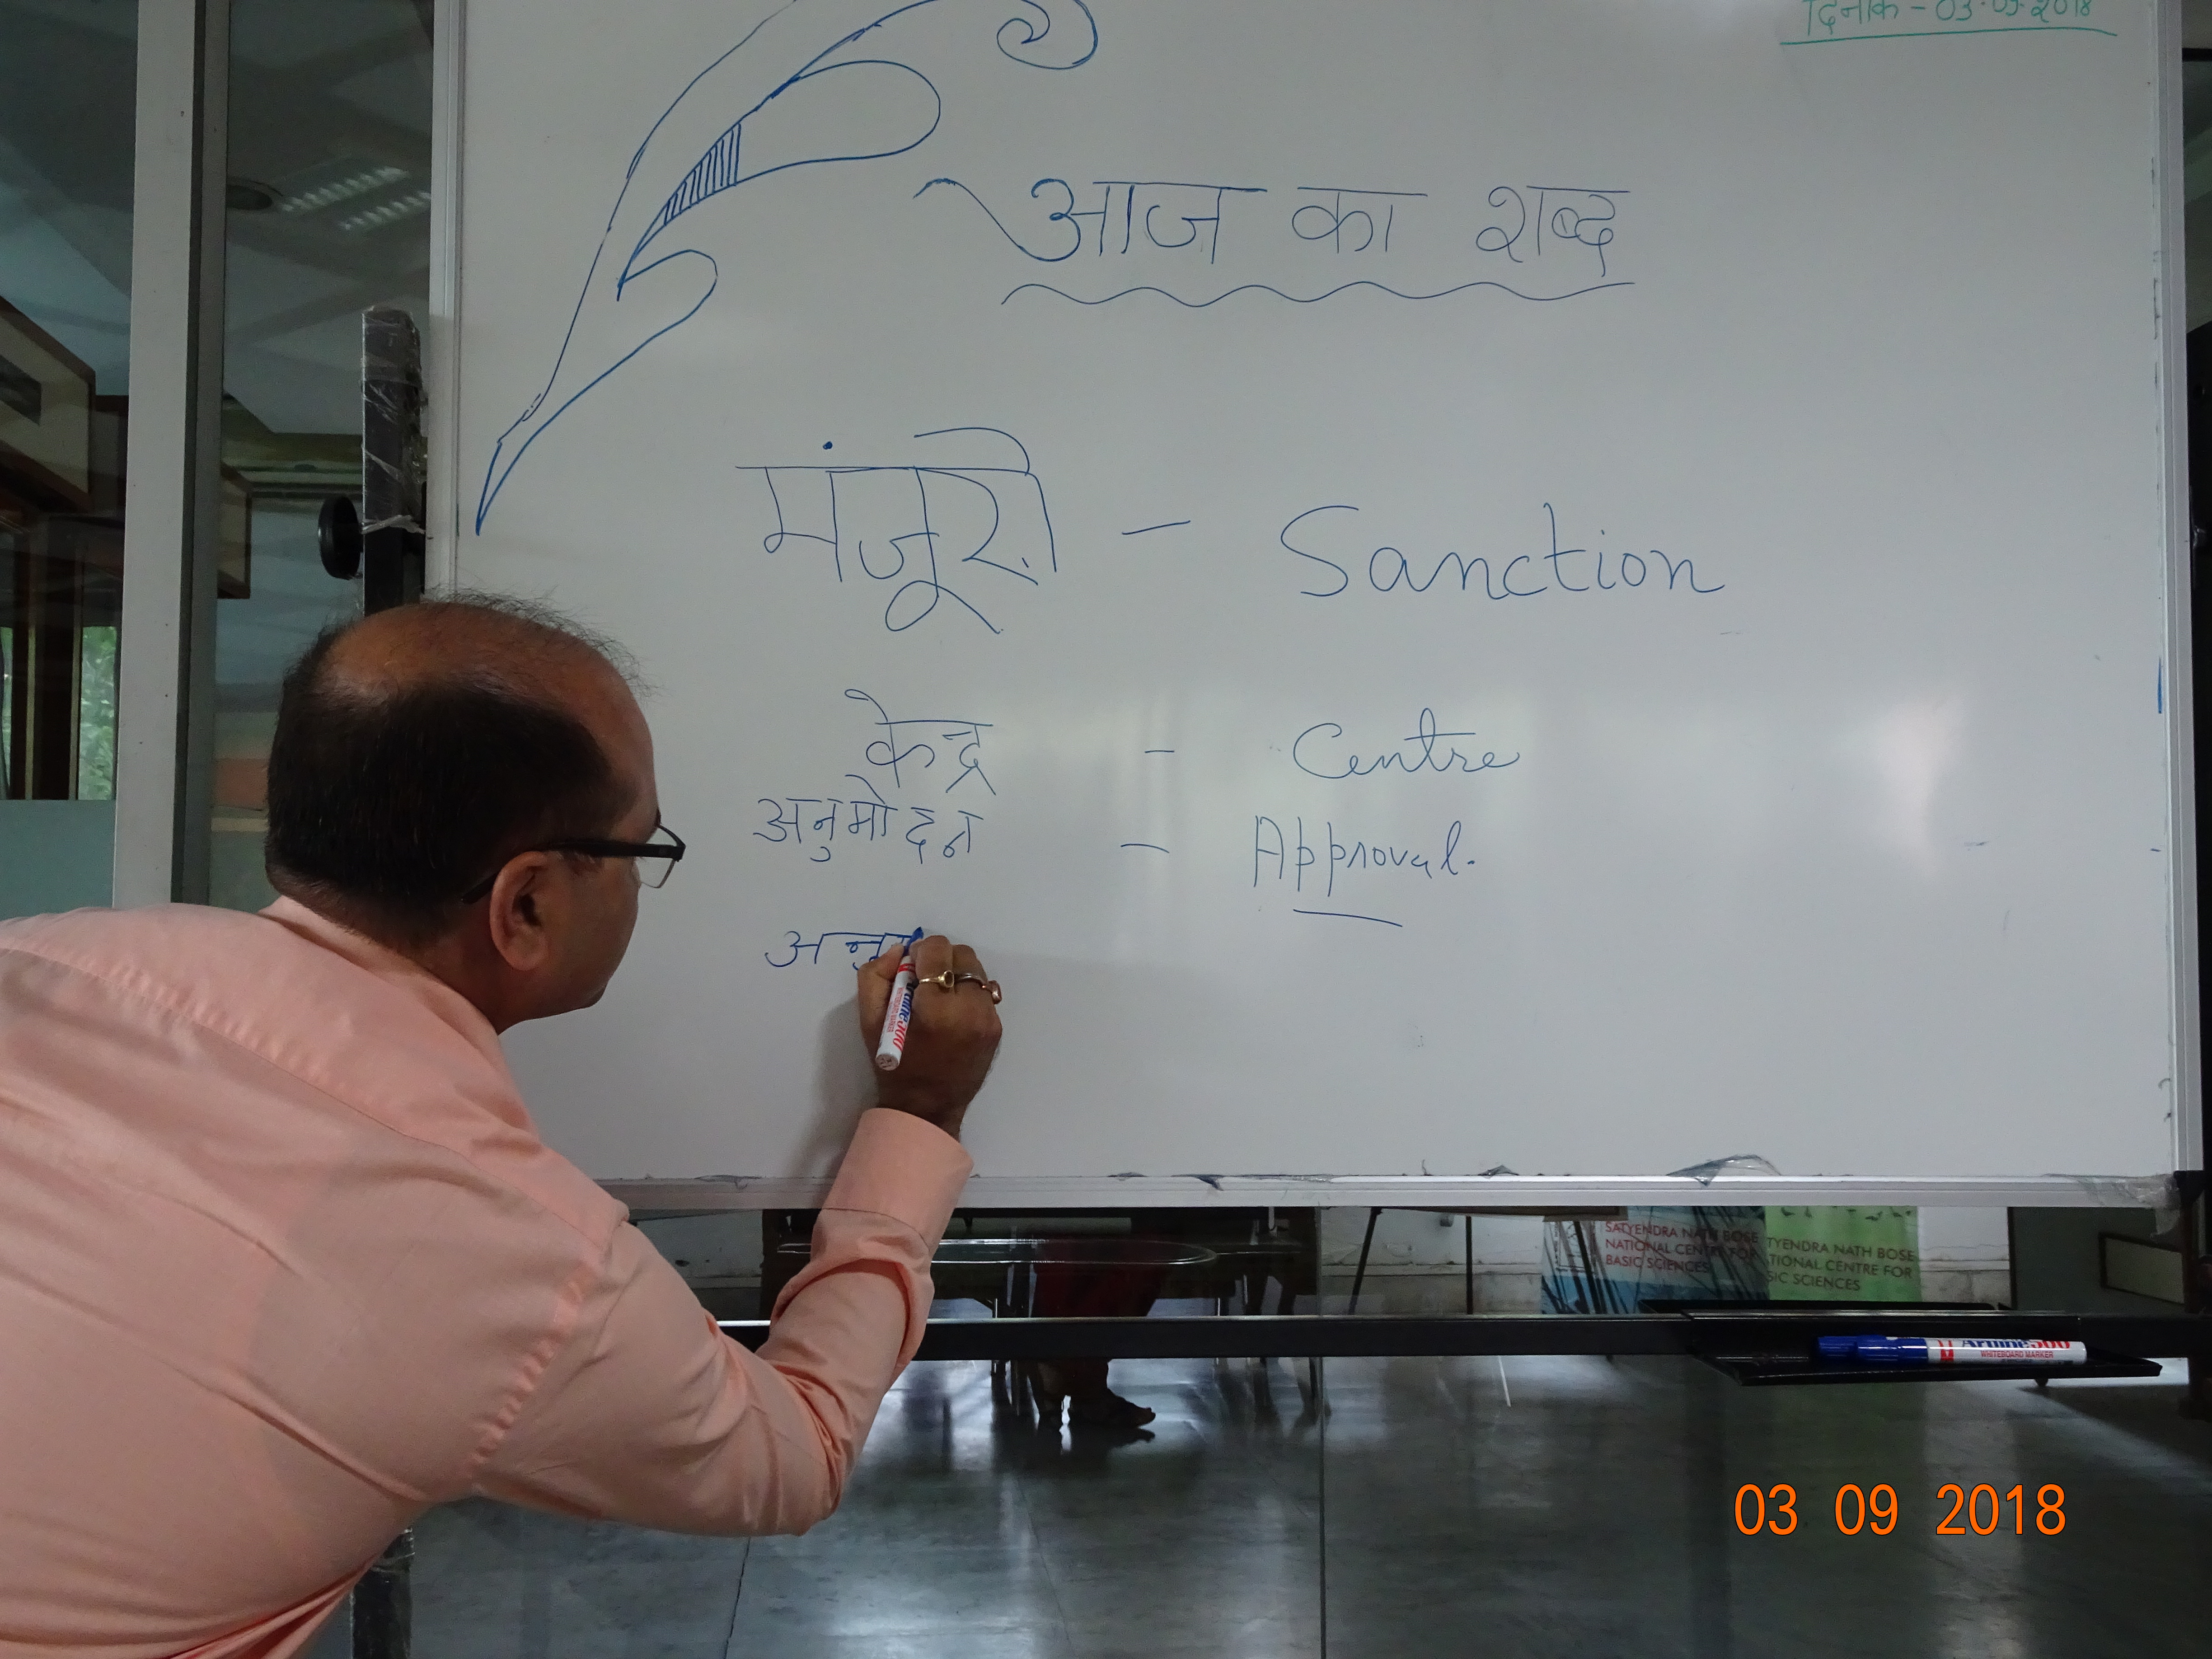 दिनांक - 03.09.2018
आज का शब्द
मंजूरी - Sanction
केन्द्र - Centre
अनुमोदन - Approval.
अनु
SATYENDRA NATH BOSE
NATIONAL CENTRE FOR
BASIC SCIENCES
TYENDRA NATH BOSE
TIONAL CENTRE FOR
SIC SCIENCES
Artline500
WHITEBOARD MARKER
03 09 2018